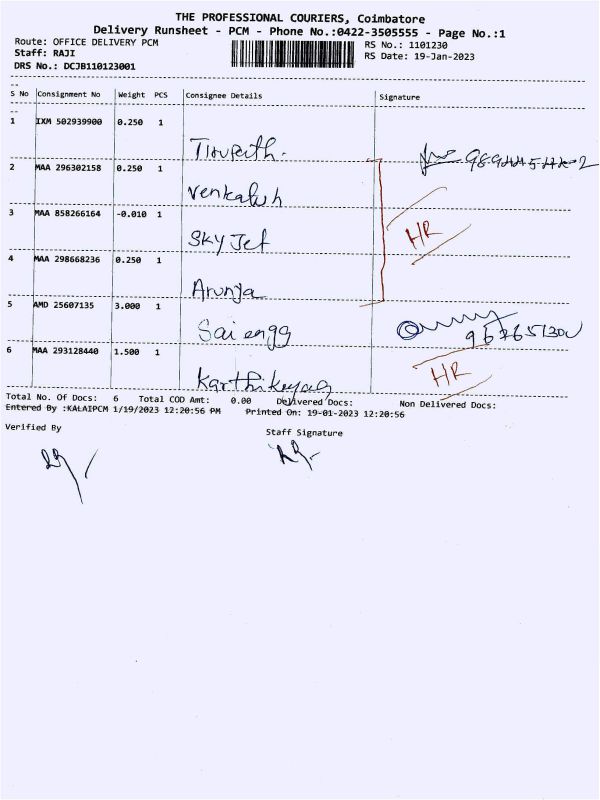 THE PROFESSIONAL COURIERS, Coimbatore
Delivery Runsheet - PCM - Phone No.:0422-3505555 - Page No.:1
Route: OFFICE DELIVERY PCM
RS No.: 1101230
Staff: RAJI
RS Date: 19-Jan-2023
DRS No.: DCJB110123001
S No Consignment No Weight PCS Consignee Details Signature
1 IXM 502939900 0.250 1
Tirupath.
2 MAA 296302158 0.250 1
Venkatesh
3 MAA 858266164 -0.010 1
HR
Sky Jet
4 MAA 298668236 0.250 1
Arunya
5 AMD 25607135 3.000 1
Sai engg
6 MAA 293128440 1.500 1
HR
Karthikeyan
Total No. Of Docs: 6 Total COD Amt: 0.00 Delivered Docs: Non Delivered Docs:
Entered By :KALAIPCM 1/19/2023 12:20:56 PM Printed On: 19-01-2023 12:20:56
Verified By
Staff Signature